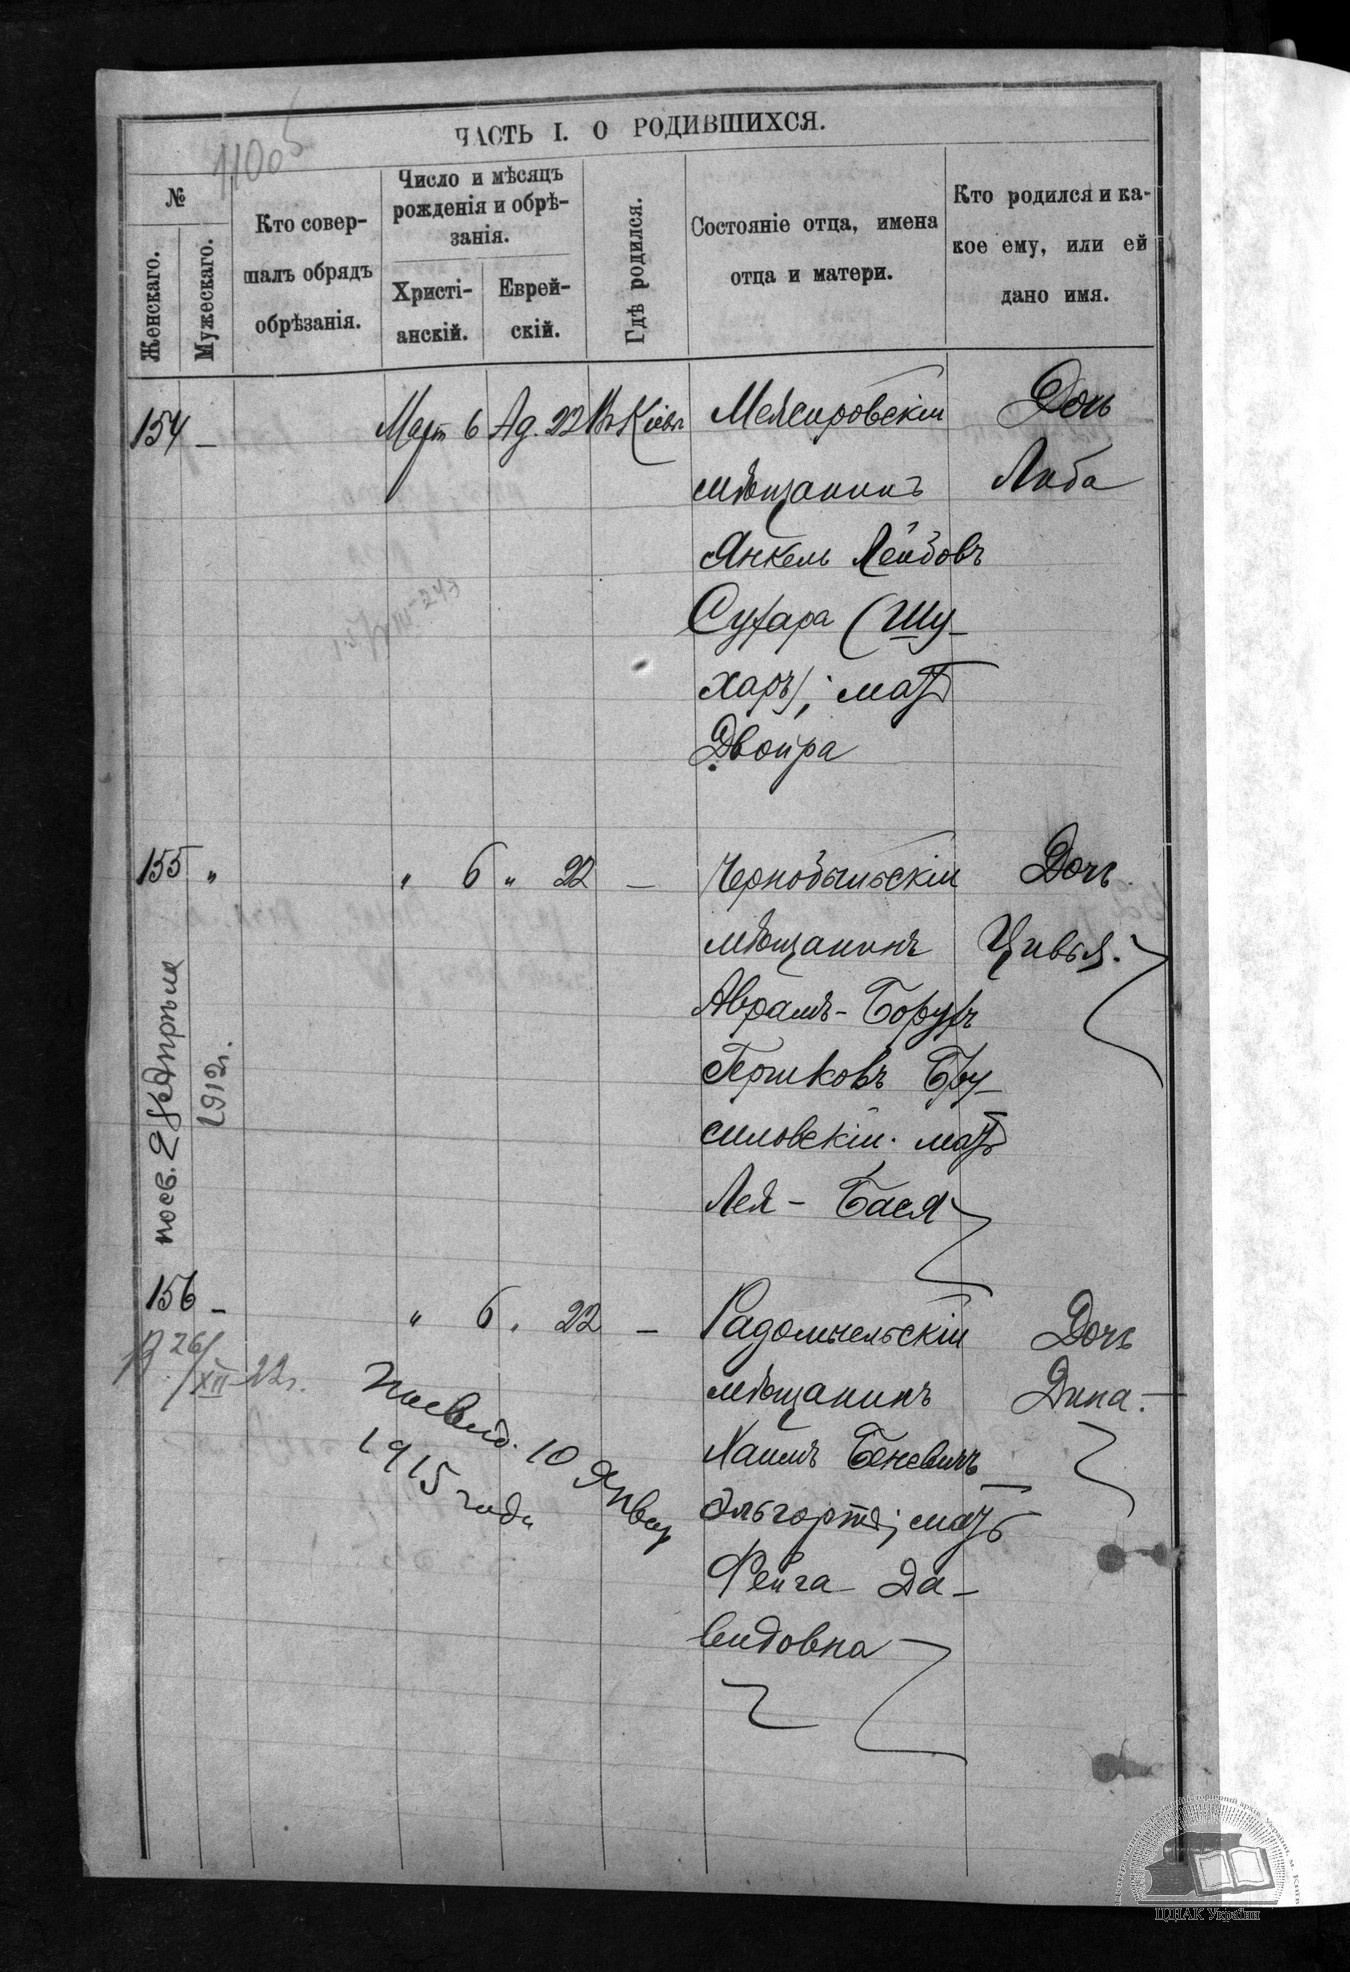 ЧАСТЬ I. О РОДИВШИХСЯ.
1100
№
Женскаго.
Мужескаго.
Кто совер-
шалъ обрядъ
обрѣзанія.
Число и мѣсяцъ
рожденія и обрѣ-
занія.
Христі-
анскій.
Еврей-
скій.
Гдѣ родился.
Состояніе отца, имена
отца и матери.
Кто родился и ка-
кое ему, или ей
дано имя.
154 — Март 6 Ад. 22 Въ Кіевѣ
мѣщанинъ
Янкель Лейбовъ
Сухара (Шу-
харъ); мать
Двойра
Дочь
Либа
155 " " 6 " 22 —
Чернобыльскій
мѣщанинъ
Аврамъ-Борухъ
Гершковъ Бру-
силовскій. мать
Лея - Бася
Дочь
Цивья.
1912г.
156 — " 6 " 22 —
Радомысльскій
мѣщанинъ
Хаимъ Беневичъ
мать
Фейга Да-
видовна
Дочь
Дина.
26/XII-22г.
10 Январ
1915 года
ЦДІАК України